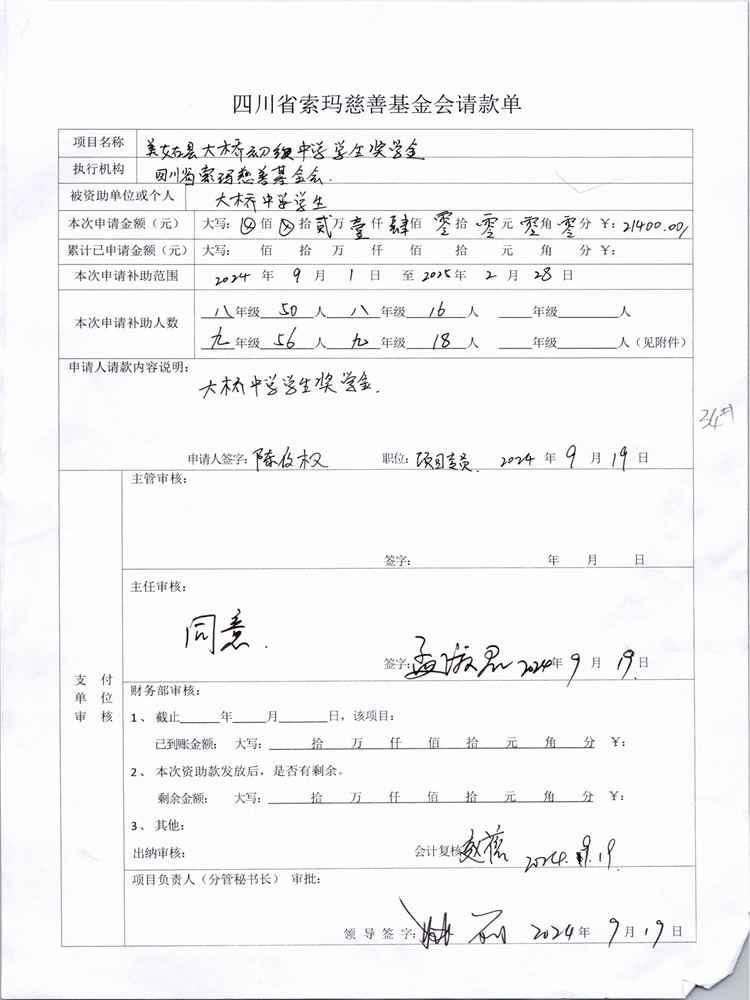 四川省索玛慈善基金会请款单
项目名称 美姑县大桥初级中学学生奖学金
执行机构 四川省索玛慈善基金会.
被资助单位或个人 大桥中学学生
本次申请金额（元） 大写: ⊗佰⊗拾贰万壹仟肆佰零拾零元零角零分 ¥: 21400.00
累计已申请金额（元） 大写: 佰 拾 万 仟 佰 拾 元 角 分 ¥:
本次申请补助范围 2024 年 9 月 1 日 至 2025 年 2 月 28 日
本次申请补助人数 八年级 50 人 八 年级 16 人 年级 人
九年级 56 人 九 年级 18 人 年级 人（见附件）
申请人请款内容说明:
大桥中学学生奖学金.
34#
申请人签字: 陈俊权 职位: 项目专员. 2024 年 9 月 19 日
主管审核:
签字: 年 月 日
主任审核:
同意.
签字: 2024年 9 月 19 日
支付单位审核
财务部审核:
1、 截止 年 月 日，该项目:
已到账金额: 大写: 拾 万 仟 佰 拾 元 角 分 ¥:
2、 本次资助款发放后，是否有剩余。
剩余金额: 大写: 拾 万 仟 佰 拾 元 角 分 ¥:
3、 其他:
出纳审核: 会计复核 2024.9.19.
项目负责人（分管秘书长） 审批:
领 导 签 字: 2024 年 9 月 19 日